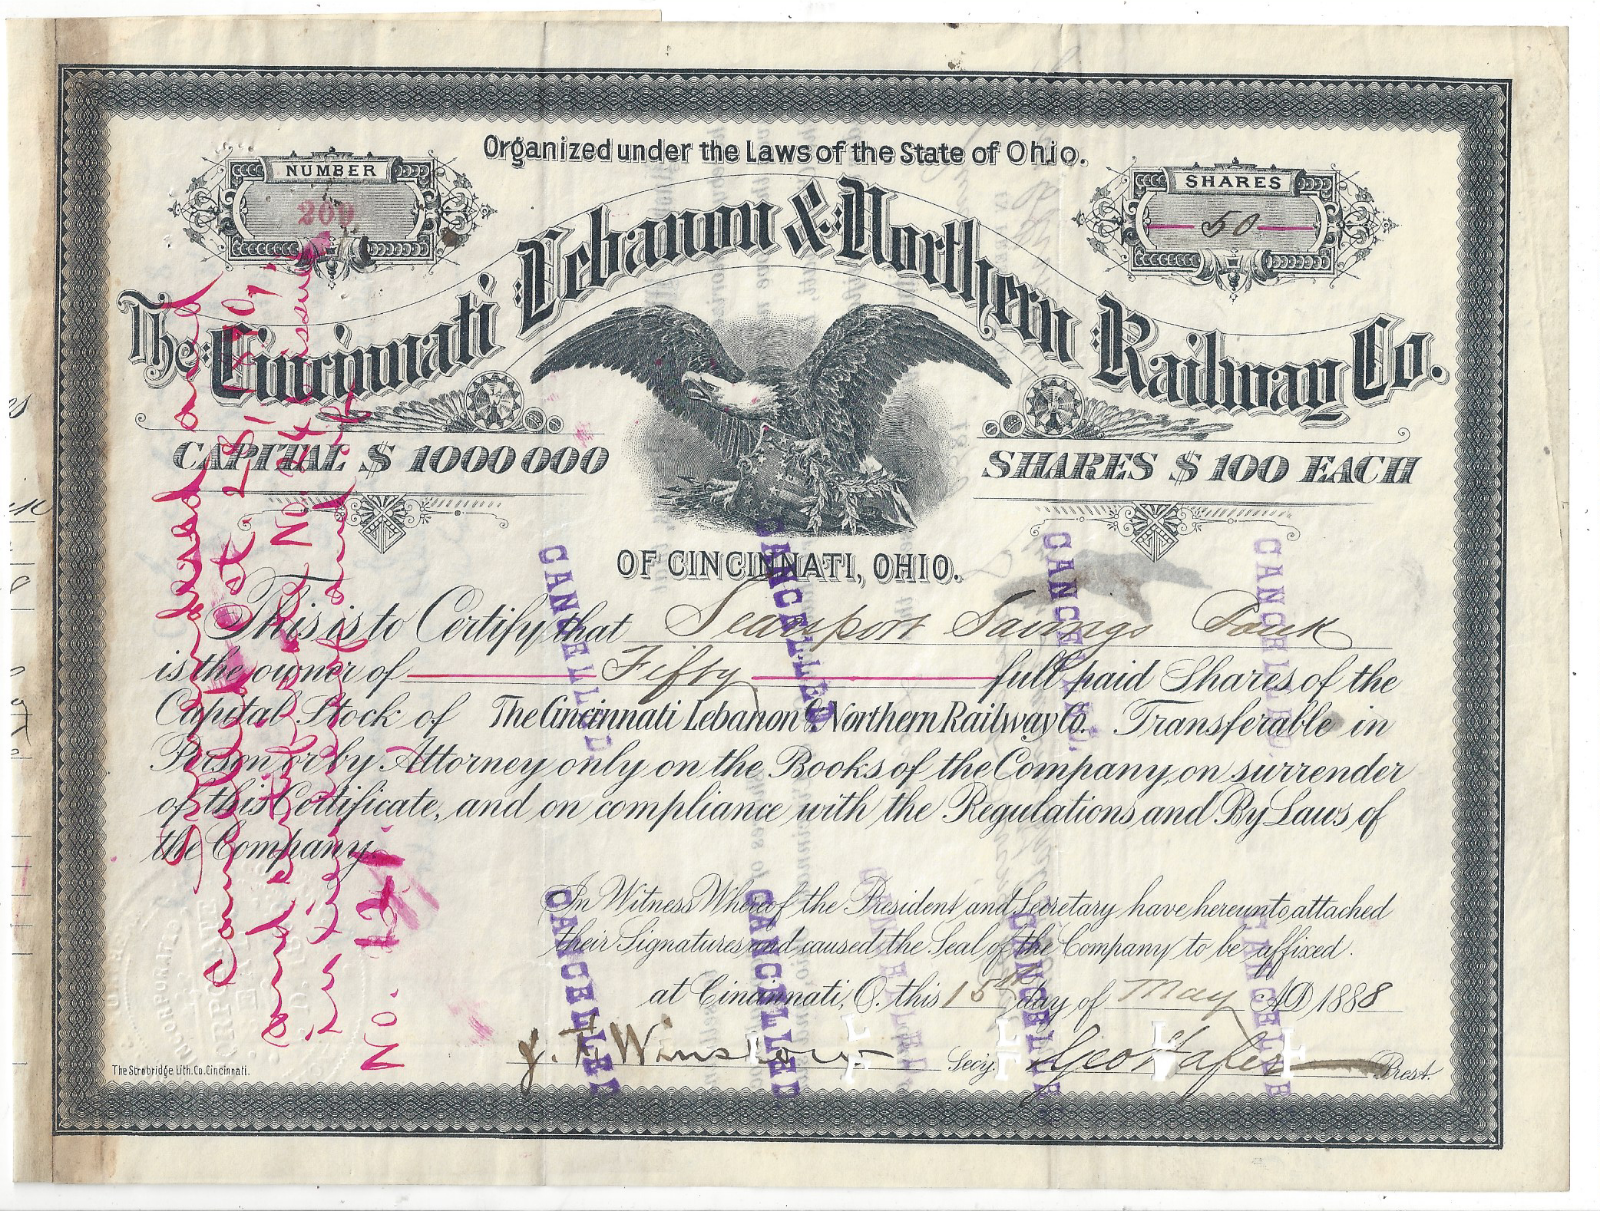 Organized under the Laws of the State of Ohio.
NUMBER
209
SHARES
50
The Cincinnati Lebanon & Northern Railway Co.
CAPITAL $ 1000000
SHARES $ 100 EACH
OF CINCINNATI, OHIO.
This is to Certify that Seamport Savings Bank
is the owner of Fifty full paid Shares of the
Capital Stock of The Cincinnati Lebanon & Northern Railway Co. Transferable in
Person or by Attorney only on the Books of the Company, on surrender
of this Certificate, and on compliance with the Regulations and By Laws of
the Company.
In Witness Whereof the President and Secretary have hereunto attached
their Signatures and caused the Seal of the Company to be affixed.
at Cincinnati, O. this 15th day of May AD 1888
J. F. Winslow Secy. Geo Hafer Prest.
The Strobridge Lith. Co. Cincinnati.
Surrendered and
Cancelled
and
in lieu thereof and of
No. 121
CANCELLED
CANCELLED.
CANCELLED.
CANCELLED
CANCELLED
CANCELLED
CANCELLED
CANCELLED
CANCELLED